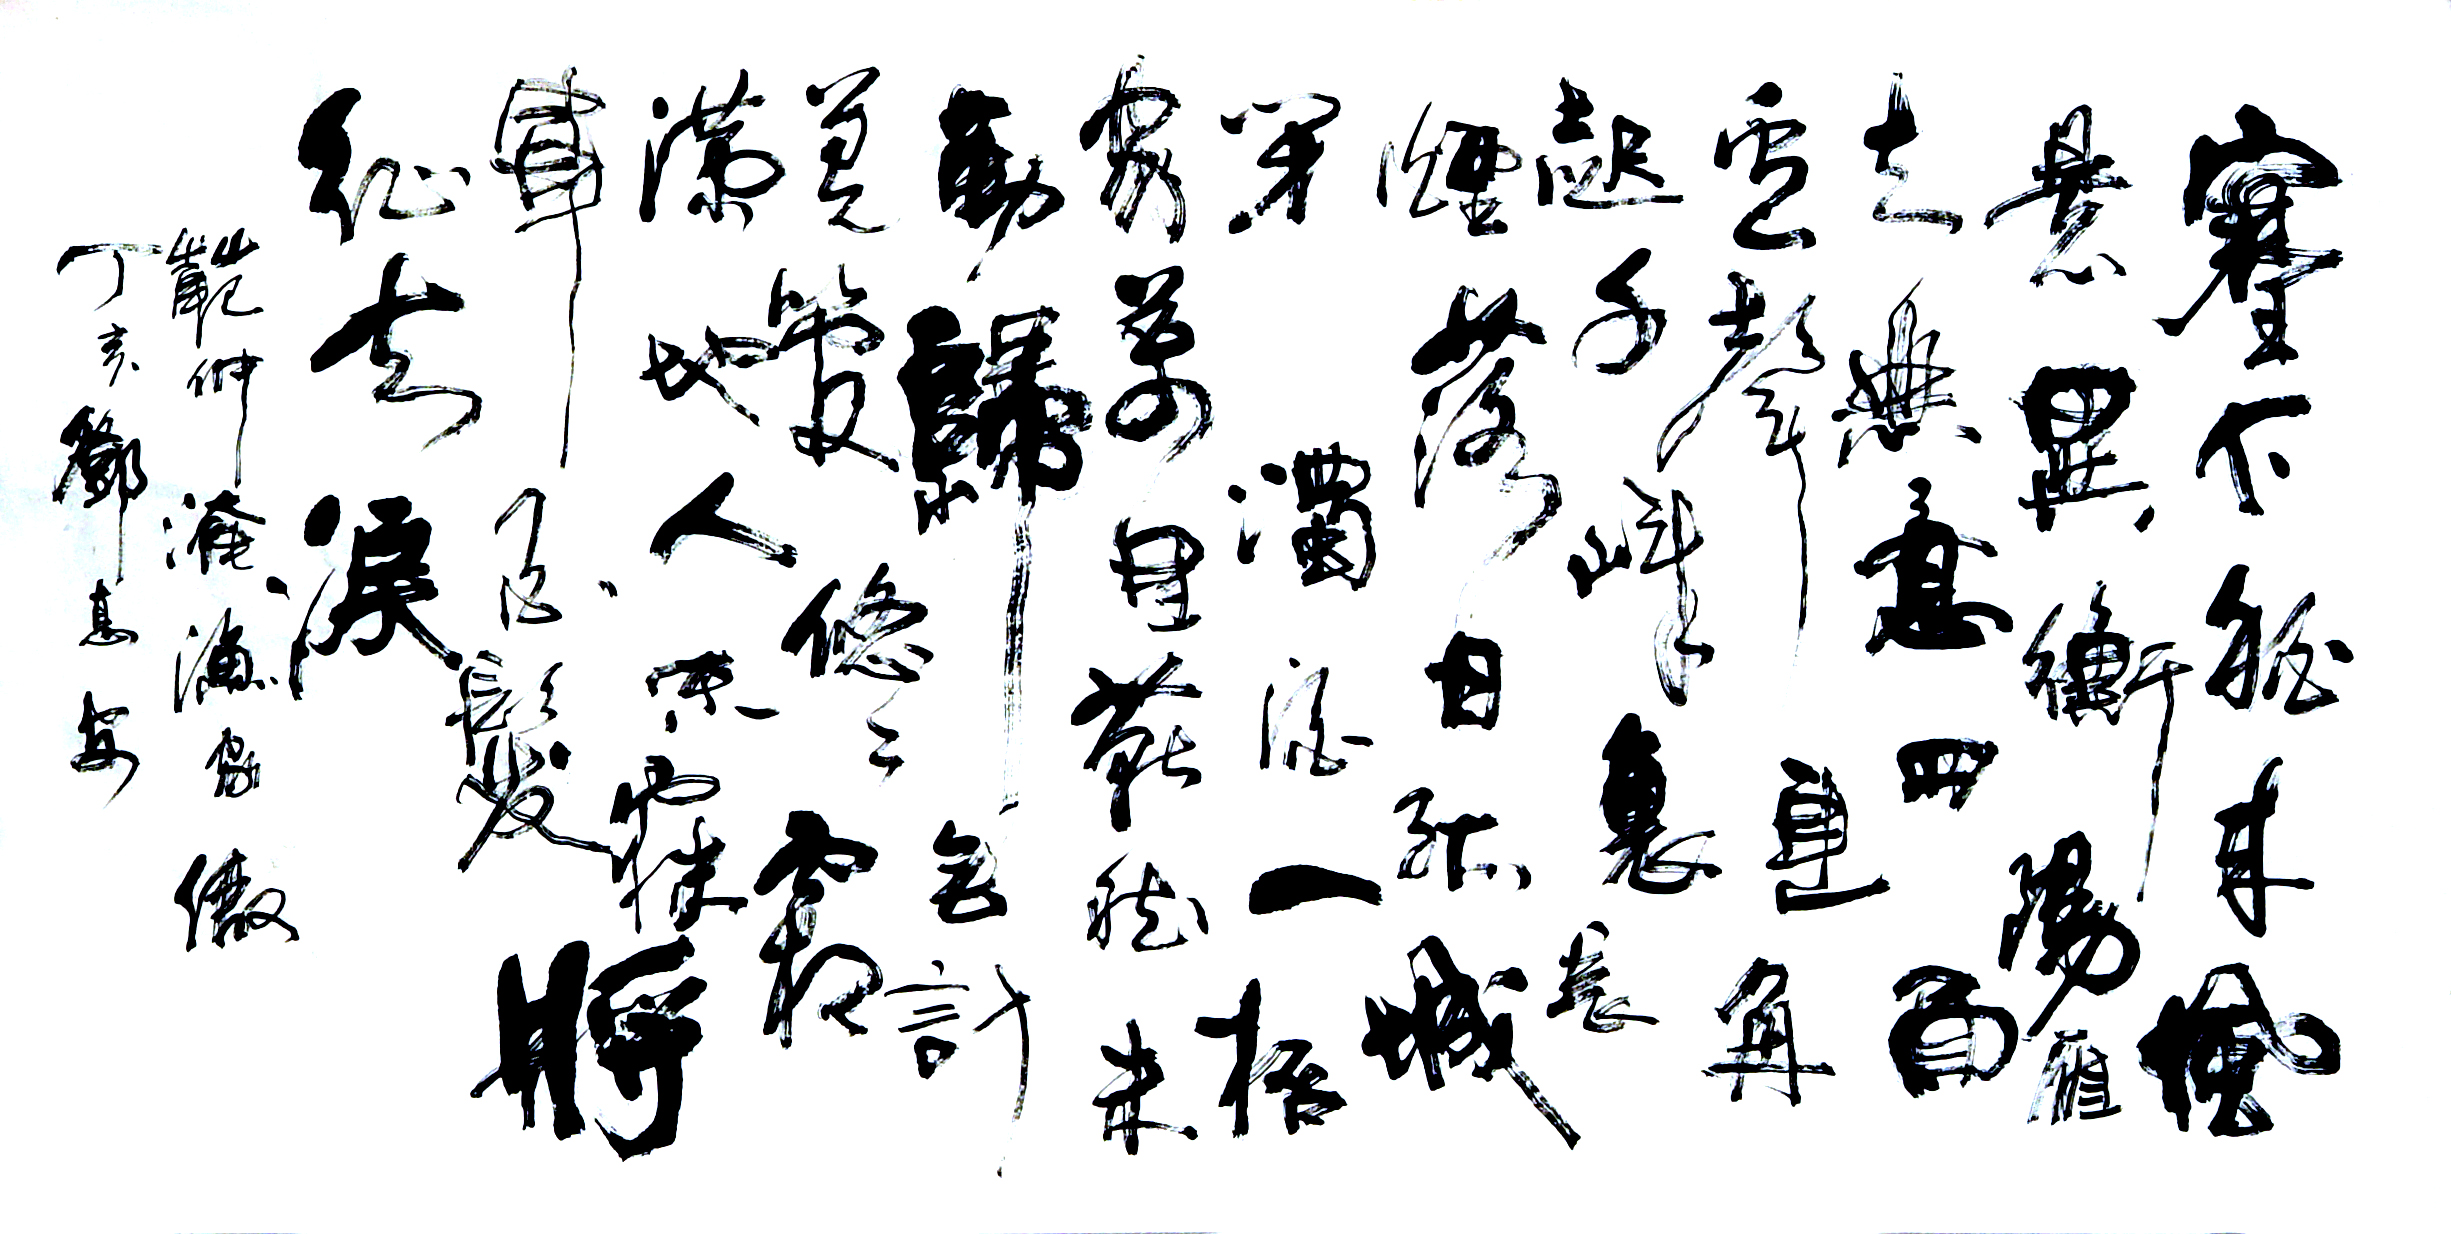 塞下秋来風
景異衡陽雁
去無意四面
邊聲連角
起千嶂裏長
煙落日孤城
閉濁酒一桮
家萬里燕然未
勒歸無計
羌管悠〻霜
滿地人不寐將
軍白髮
征夫淚
范仲淹漁家傲
丁亥鄧惠安